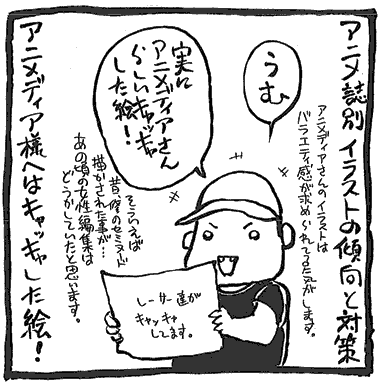 アニメ誌別イラストの傾向と対策
アニメディアさんのイラストは
バラエティ感が求められてる気がします。
うむ
実に
アニメディアさん
らしいキャッキャ
した絵!
そういえば
昔、俺のセミヌード
描かされた事が…
あの頃の女性編集は
どうかしていたと思います。
レーサー達が
キャッキャ
してます。
アニメディア様へはキャッキャした絵!